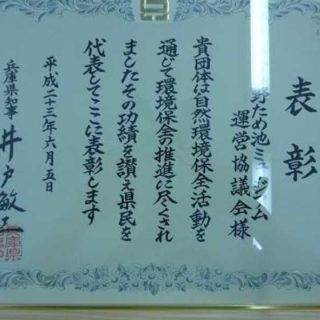 表彰
野ため池ミュージアム
運営協議会様
貴団体は自然環境保全活動を
通じて環境保全の推進に尽くされ
ましたその功績を讃え県民を
代表してここに表彰します
平成二十三年六月五日
兵庫県知事 井戸敏三